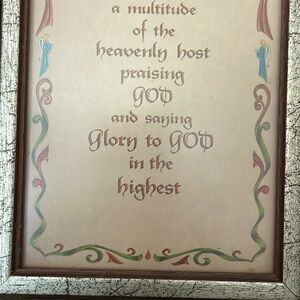 a multitude
of the
heavenly host
praising
GOD
and saying
Glory to GOD
in the
highest